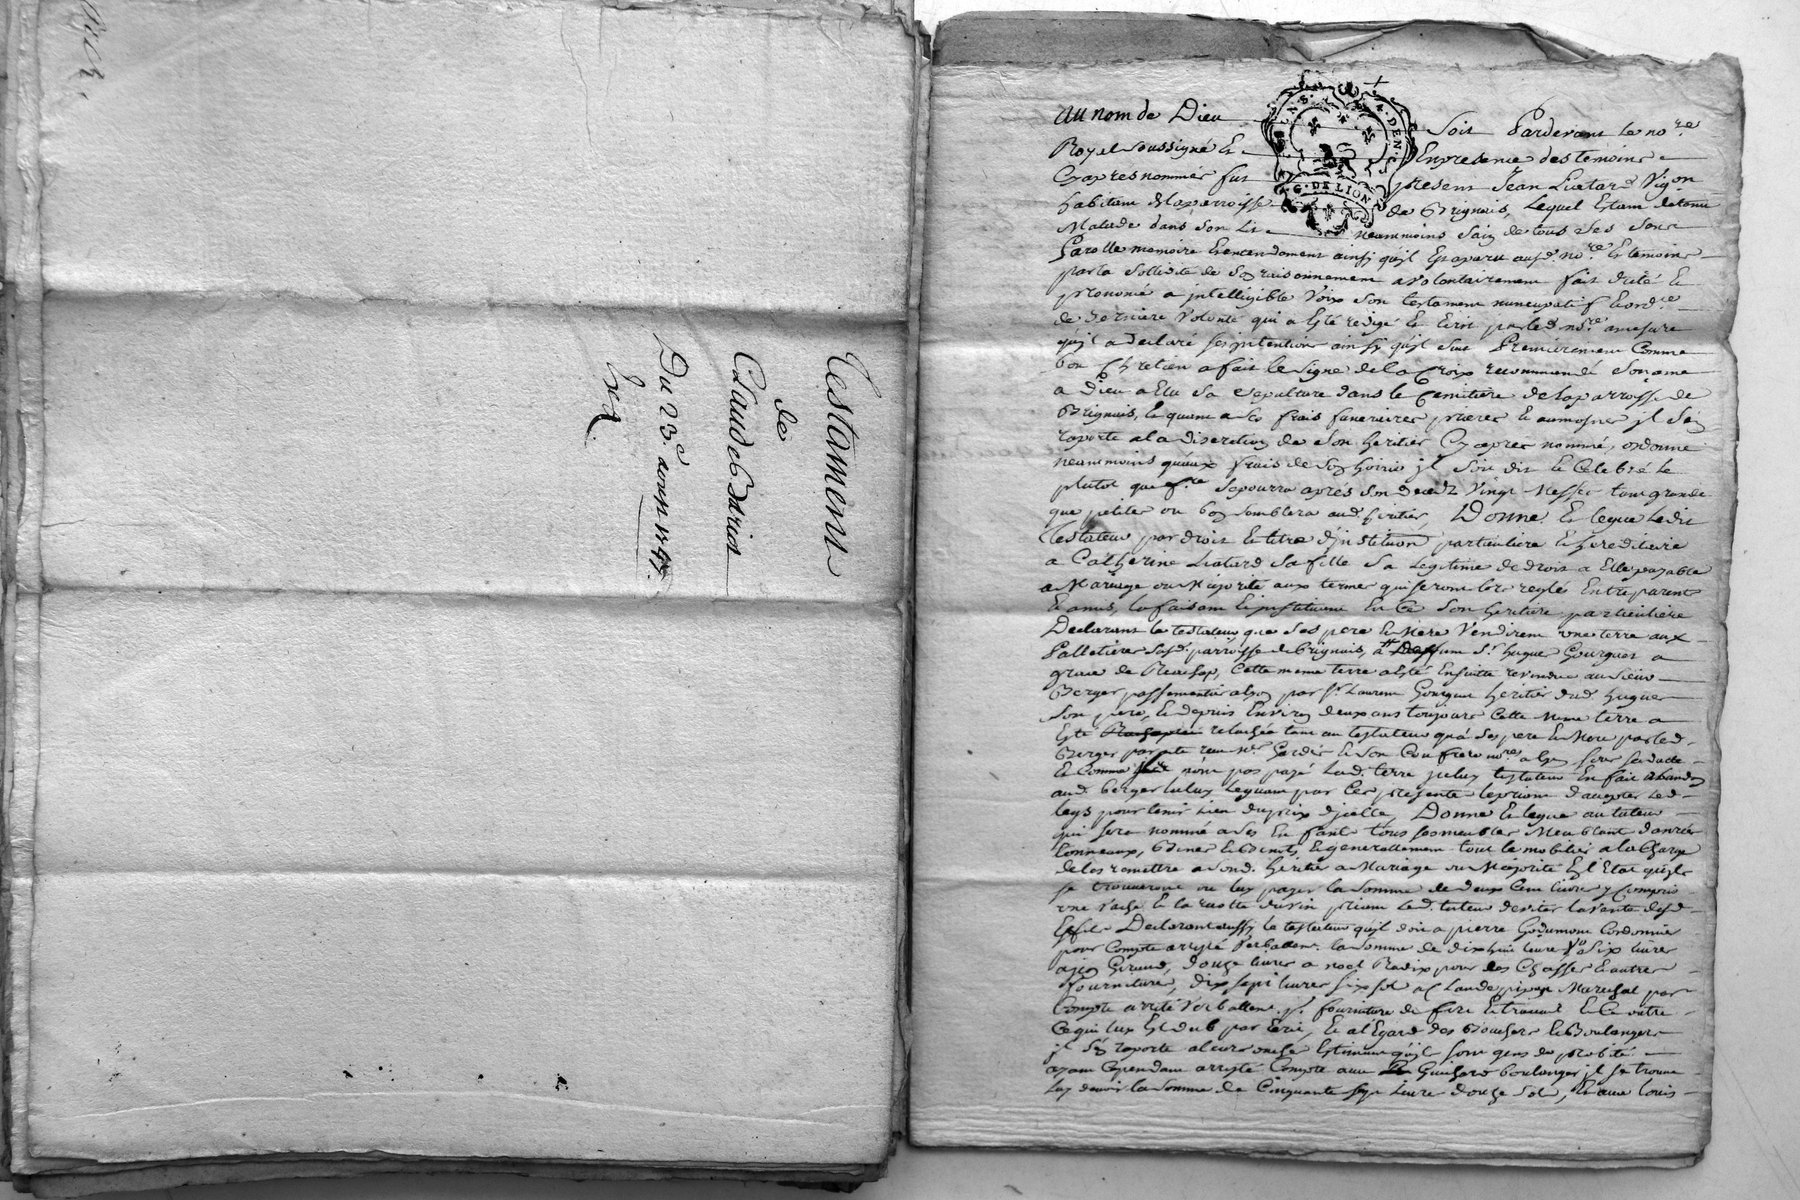 Testament
de
Claude Dariot
Du 23e aoust
au nom de Dieu Soit Pardevant le nore
Royal soussigné Et Enpresence des temoins
Cyapres nommés fut present Jean Liatard Vigon
habitant de la parroisse de Brignais, lequel Estant detenu
Malade dans son Lit neanmoins sain de tous ses sens
Parolle memoire Et entendement ainsy quil Est aparu aud. nore Et temoins
par la sollidité de son raisonnement a volontairement fait dicté Et
prononcé a jntelligible Voix son testament nuncupatif Et ordre
de derniere Volonté qui a Esté redigé Et Ecrit par led nore amesure
quil a declaré ses jntentions ainsy quil suit Premierement Comme
bon Chretien a fait le signe de la Croix recommandé son ame
a Dieu a Elu sa sepulture dans le Cemitiere de la parroisse de
Brignais, Et quant a ses frais funeraires prieres Et aumosnes jl sen
raporte a la discretion de son heritier Cyapres nommé, ordonne
neanmoins quaux frais de son hoirie jl soit dit Et Celebré le
plutot que fre sepourra aprés son deced Vingt Messes tant grande
que petites ou bon semblera aud heritier, Donne Et legue ledit
Testateur par droit Et titre djnstitution particuliere Et hereditaire
a Catherine Liatard sa fille sa Legitime de droit a Elle payable
a Mariage ou Majorité aux termes qui seront lors reglé Entre parents
Et amis, la faisant Et jnstituant En Ce son heritiere particuliere
Declarant le testateur que ses pere Et Mere Vendirent une terre aux
Palletieres susd. parroisse de Brignais, a Sr hugue Gourguet a
grace de Rachap, Cette meme terre a Esté Ensuitte revendue au sieur
Berger passementier alyon par Sr Laurent heritier dud hugues
Son pere, Et depuis Environ deux ans toujours Cette meme terre a
Esté relachée tant au testateur qua ses pere Et Mere par led.
Berger par acte Et son Confrere nores alyon sous sa datte
Et Comme nont pas payé lad. terre jceluy testateur En fait abandon
aud. berger luluy leguant par Ces presente le priant daccepter led
legs pour tenir Lieu du prix djcelle, Donne Et legue au tuteur
qui sera nommé a ses Enfants tous ses meubles Meublant danrées
tonneaux, Et generallement tout le mobilier a la Charge
de les remettre a sond. heritier a Mariage ou Majorité En l Etat quils
se trouveront ou luy payer la somme de deux Cent livres y Compris
une vache Et la recolte du vin priant led. tuteur deviter la vente desd
Effets Declarant aussy le testateur quil doit a pierre Godumont Cordonnier
pour Compte arresté Verballemt la somme de dixhuit livre Six livres
a jean Giraud, douze livres a noel Radix pour des Chasses Et autres
fourniture, dix sept livres six sol a Claude Marechal par
Compte arreté Verballemt pr fourniture de fers Et travail Et Ce outre
Ce qui lux Est dub par Ecrit, Et al Egard des Bouchers Et Boulangers
jl sen raporte aleurs Estimant quils sont gens de probité
ayant Cependant arresté Compte avec Guichard boulanger jl se trouve
luy devoir la somme de Cinquante sept Livre douze sols, Et avec louis
S. DEN.
G. DE LION